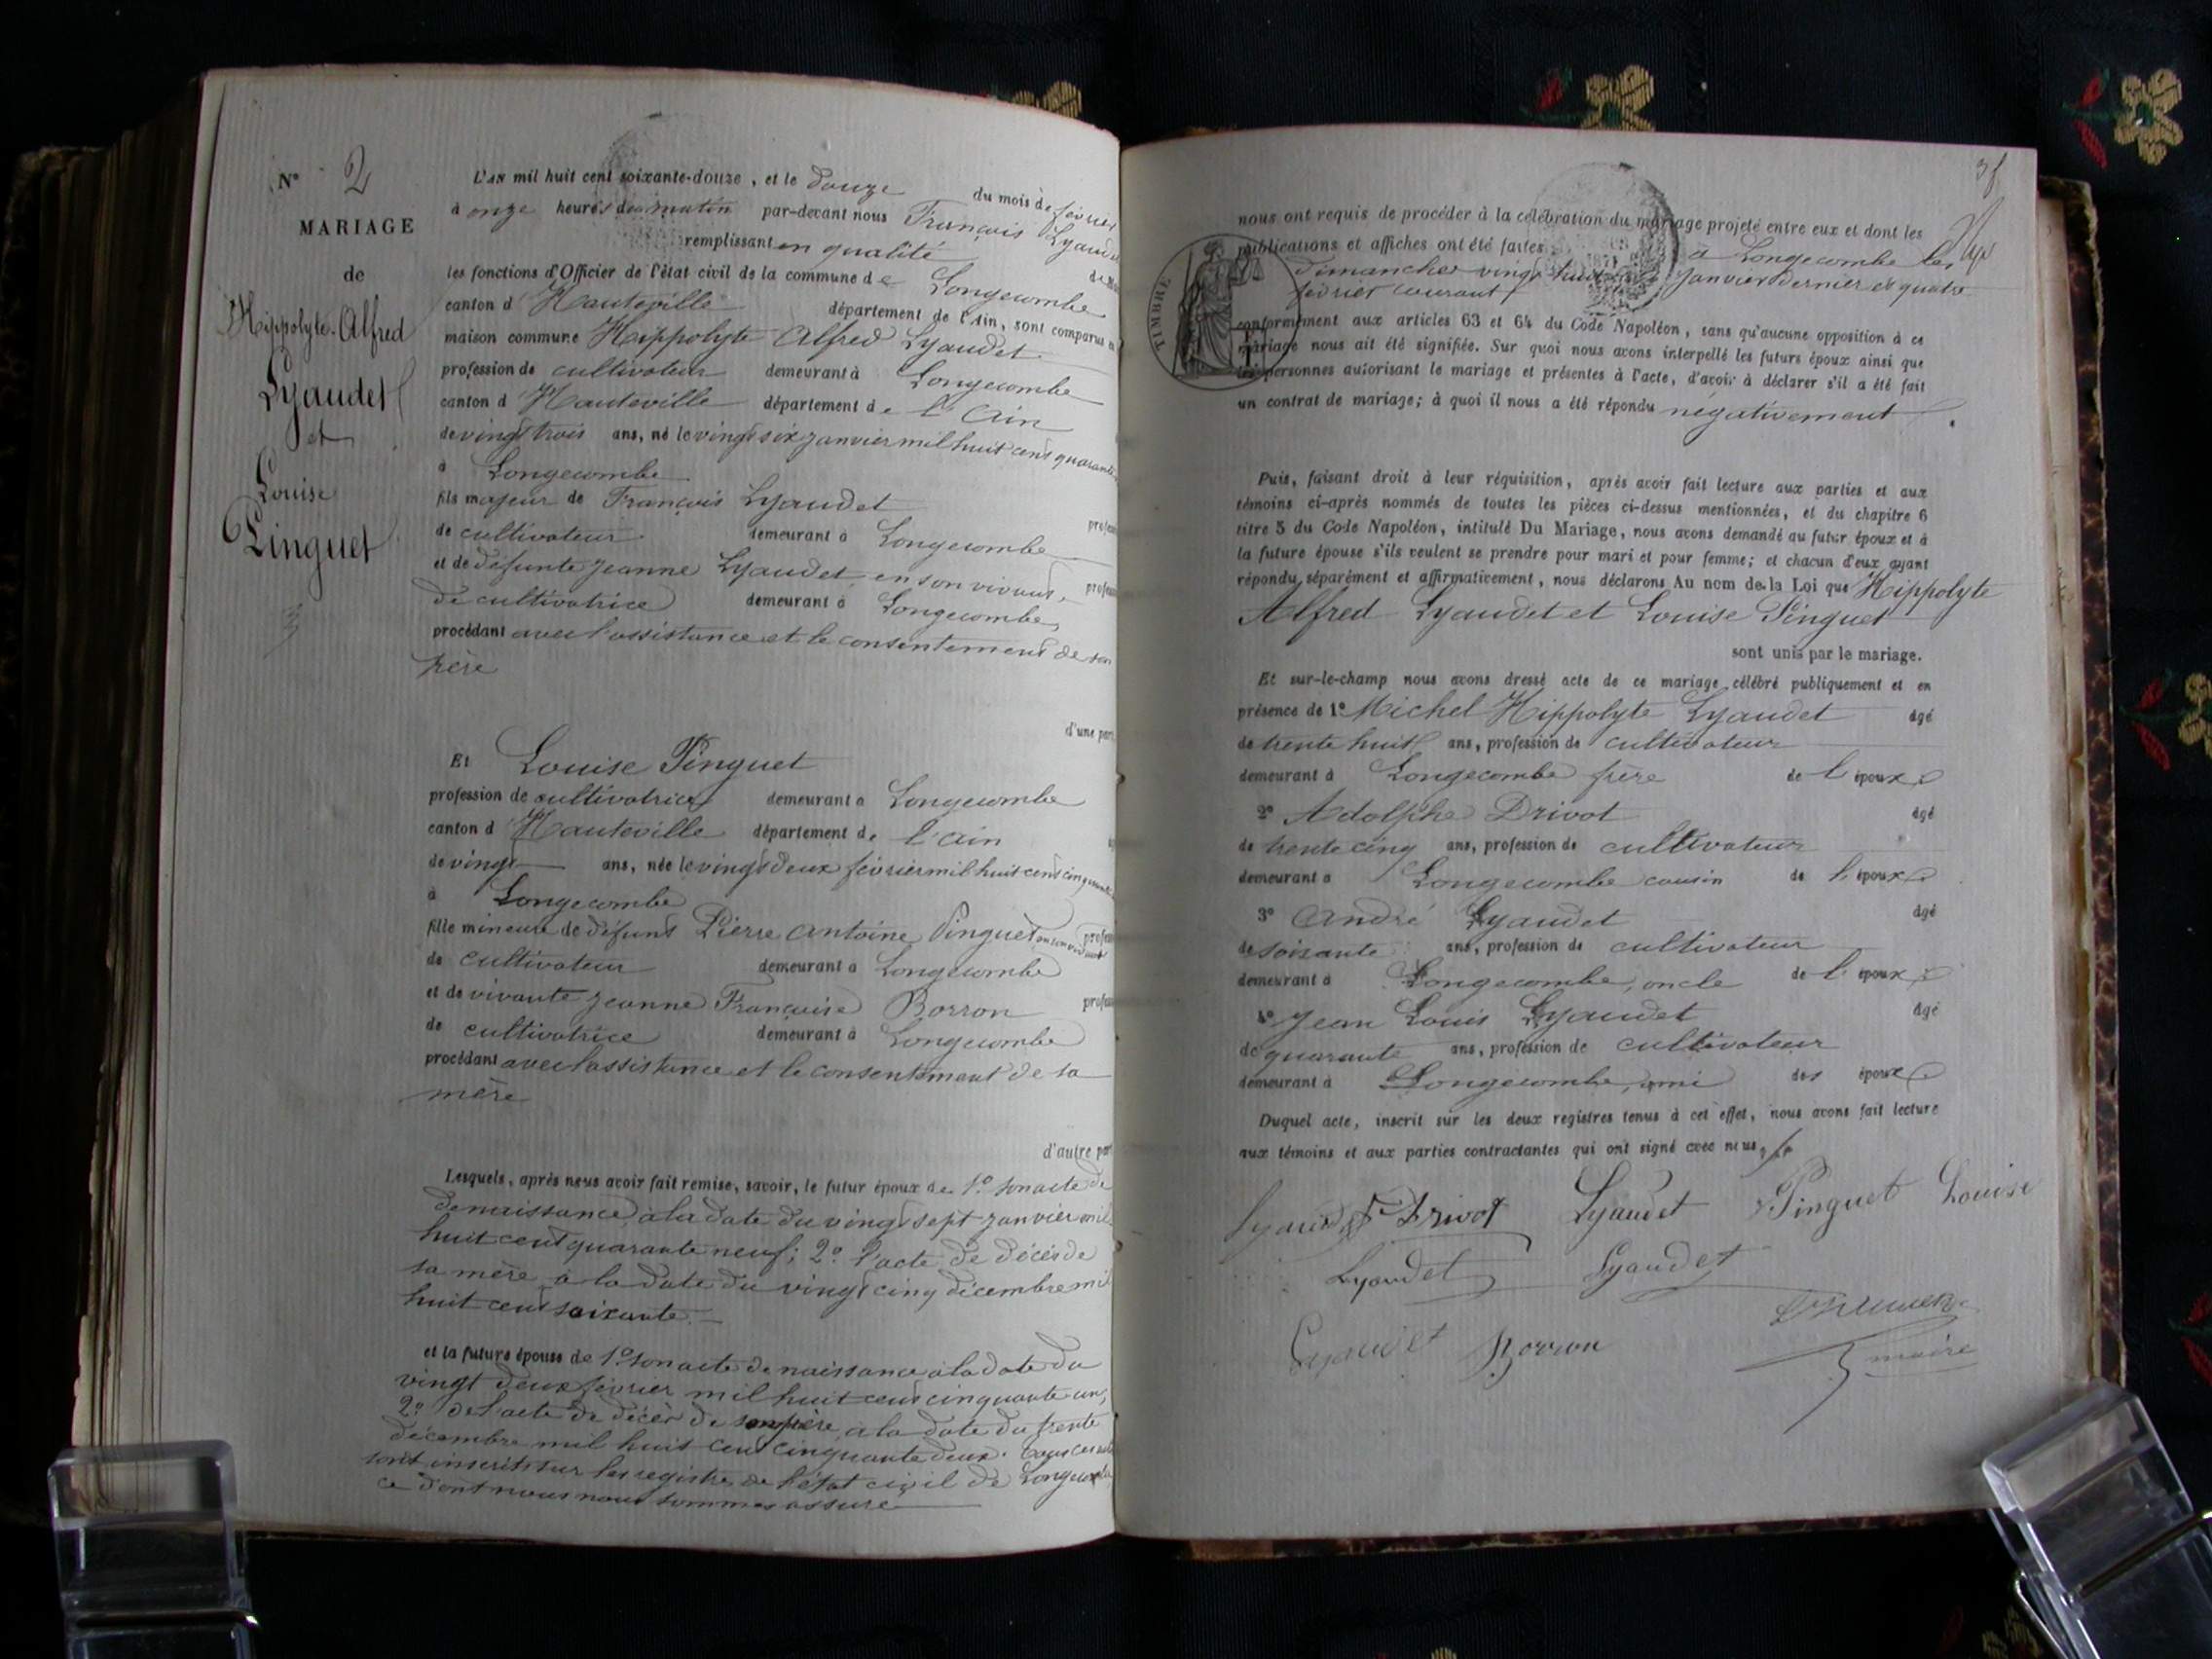 N° 2
MARIAGE
de
Hippolyte Alfred
Lyaudet
et
Louise
Pinguet
L'AN mil huit cent soixante-douze, et le douze du mois de février
à onze heures du matin par-devant nous François Lyaudet
remplissant en qualité de
les fonctions d'Officier de l'état civil de la commune de Longecombe
canton d'Hauteville département de l'Ain, sont comparus en
maison commune Hippolyte Alfred Lyaudet
profession de cultivateur demeurant à Longecombe
canton d'Hauteville département de l'Ain
de vingt trois ans, né le vingt six janvier mil huit cent quarante
à Longecombe
fils majeur de François Lyaudet profes
de cultivateur demeurant à Longecombe
et de défunte Jeanne Lyaudet, en son vivant, profes
de cultivatrice demeurant à Longecombe,
procédant avec l'assistance et le consentement de son
père
d'une part
Et Louise Pinguet
profession de cultivatrice demeurant à Longecombe
canton d'Hauteville département de l'Ain
de vingt ans, née le vingt deux février mil huit cent cinquante
à Longecombe
fille mineure de défunt Pierre Antoine Pinguet en son vivant profes
de cultivateur demeurant à Longecombe
et de vivante Jeanne Françoise Borron profes
de cultivatrice demeurant à Longecombe
procédant avec l'assistance et le consentement de sa
mère
d'autre part
Lesquels, après nous avoir fait remise, savoir, le futur époux de 1° son acte de
de naissance à la date du vingt sept janvier mil
huit cent quarante neuf; 2° l'acte de décès de
sa mère à la date du vingt cinq décembre mil
huit cent soixante.
et la future épouse de 1° son acte de naissance à la date du
vingt deux février mil huit cent cinquante un,
2° de l'acte de décès de son père, à la date du trente
décembre mil huit cent cinquante deux. Tous ces actes
sont inscrits sur les registres de l'état civil de Longecombe
ce dont nous nous sommes assuré
nous ont requis de procéder à la célébration du mariage projeté entre eux et dont les
publications et affiches ont été faites à Longecombe les
dimanches vingt huit janvier dernier et quatre
février courant
TIMBRE
conformément aux articles 63 et 64 du Code Napoléon, sans qu'aucune opposition à ce
mariage nous ait été signifiée. Sur quoi nous avons interpellé les futurs époux ainsi que
les personnes autorisant le mariage et présentes à l'acte, d'avoir à déclarer s'il a été fait
un contrat de mariage; à quoi il nous a été répondu négativement.
Puis, faisant droit à leur réquisition, après avoir fait lecture aux parties et aux
témoins ci-après nommés de toutes les pièces ci-dessus mentionnées, et du chapitre 6
titre 5 du Code Napoléon, intitulé Du Mariage, nous avons demandé au futur époux et à
la future épouse s'ils veulent se prendre pour mari et pour femme; et chacun d'eux ayant
répondu séparément et affirmativement, nous déclarons Au nom de la Loi que Hippolyte
Alfred Lyaudet et Louise Pinguet
sont unis par le mariage.
Et sur-le-champ nous avons dressé acte de ce mariage célébré publiquement et en
présence de 1° Michel Hippolyte Lyaudet âgé
de trente huit ans, profession de cultivateur
demeurant à Longecombe frère de l'époux
2° Adolphe Drivot âgé
de trente cinq ans, profession de cultivateur
demeurant à Longecombe cousin de l'époux
3° André Lyaudet âgé
de soixante ans, profession de cultivateur
demeurant à Longecombe, oncle de l'époux
4° Jean Louis Lyaudet âgé
de quarante ans, profession de cultivateur
demeurant à Longecombe, ami des époux
Duquel acte, inscrit sur les deux registres tenus à cet effet, nous avons fait lecture
aux témoins et aux parties contractantes qui ont signé avec nous,
Lyaudet Drivot Lyaudet Pinguet Louise
Lyaudet Lyaudet
Lyaudet Borron
maire